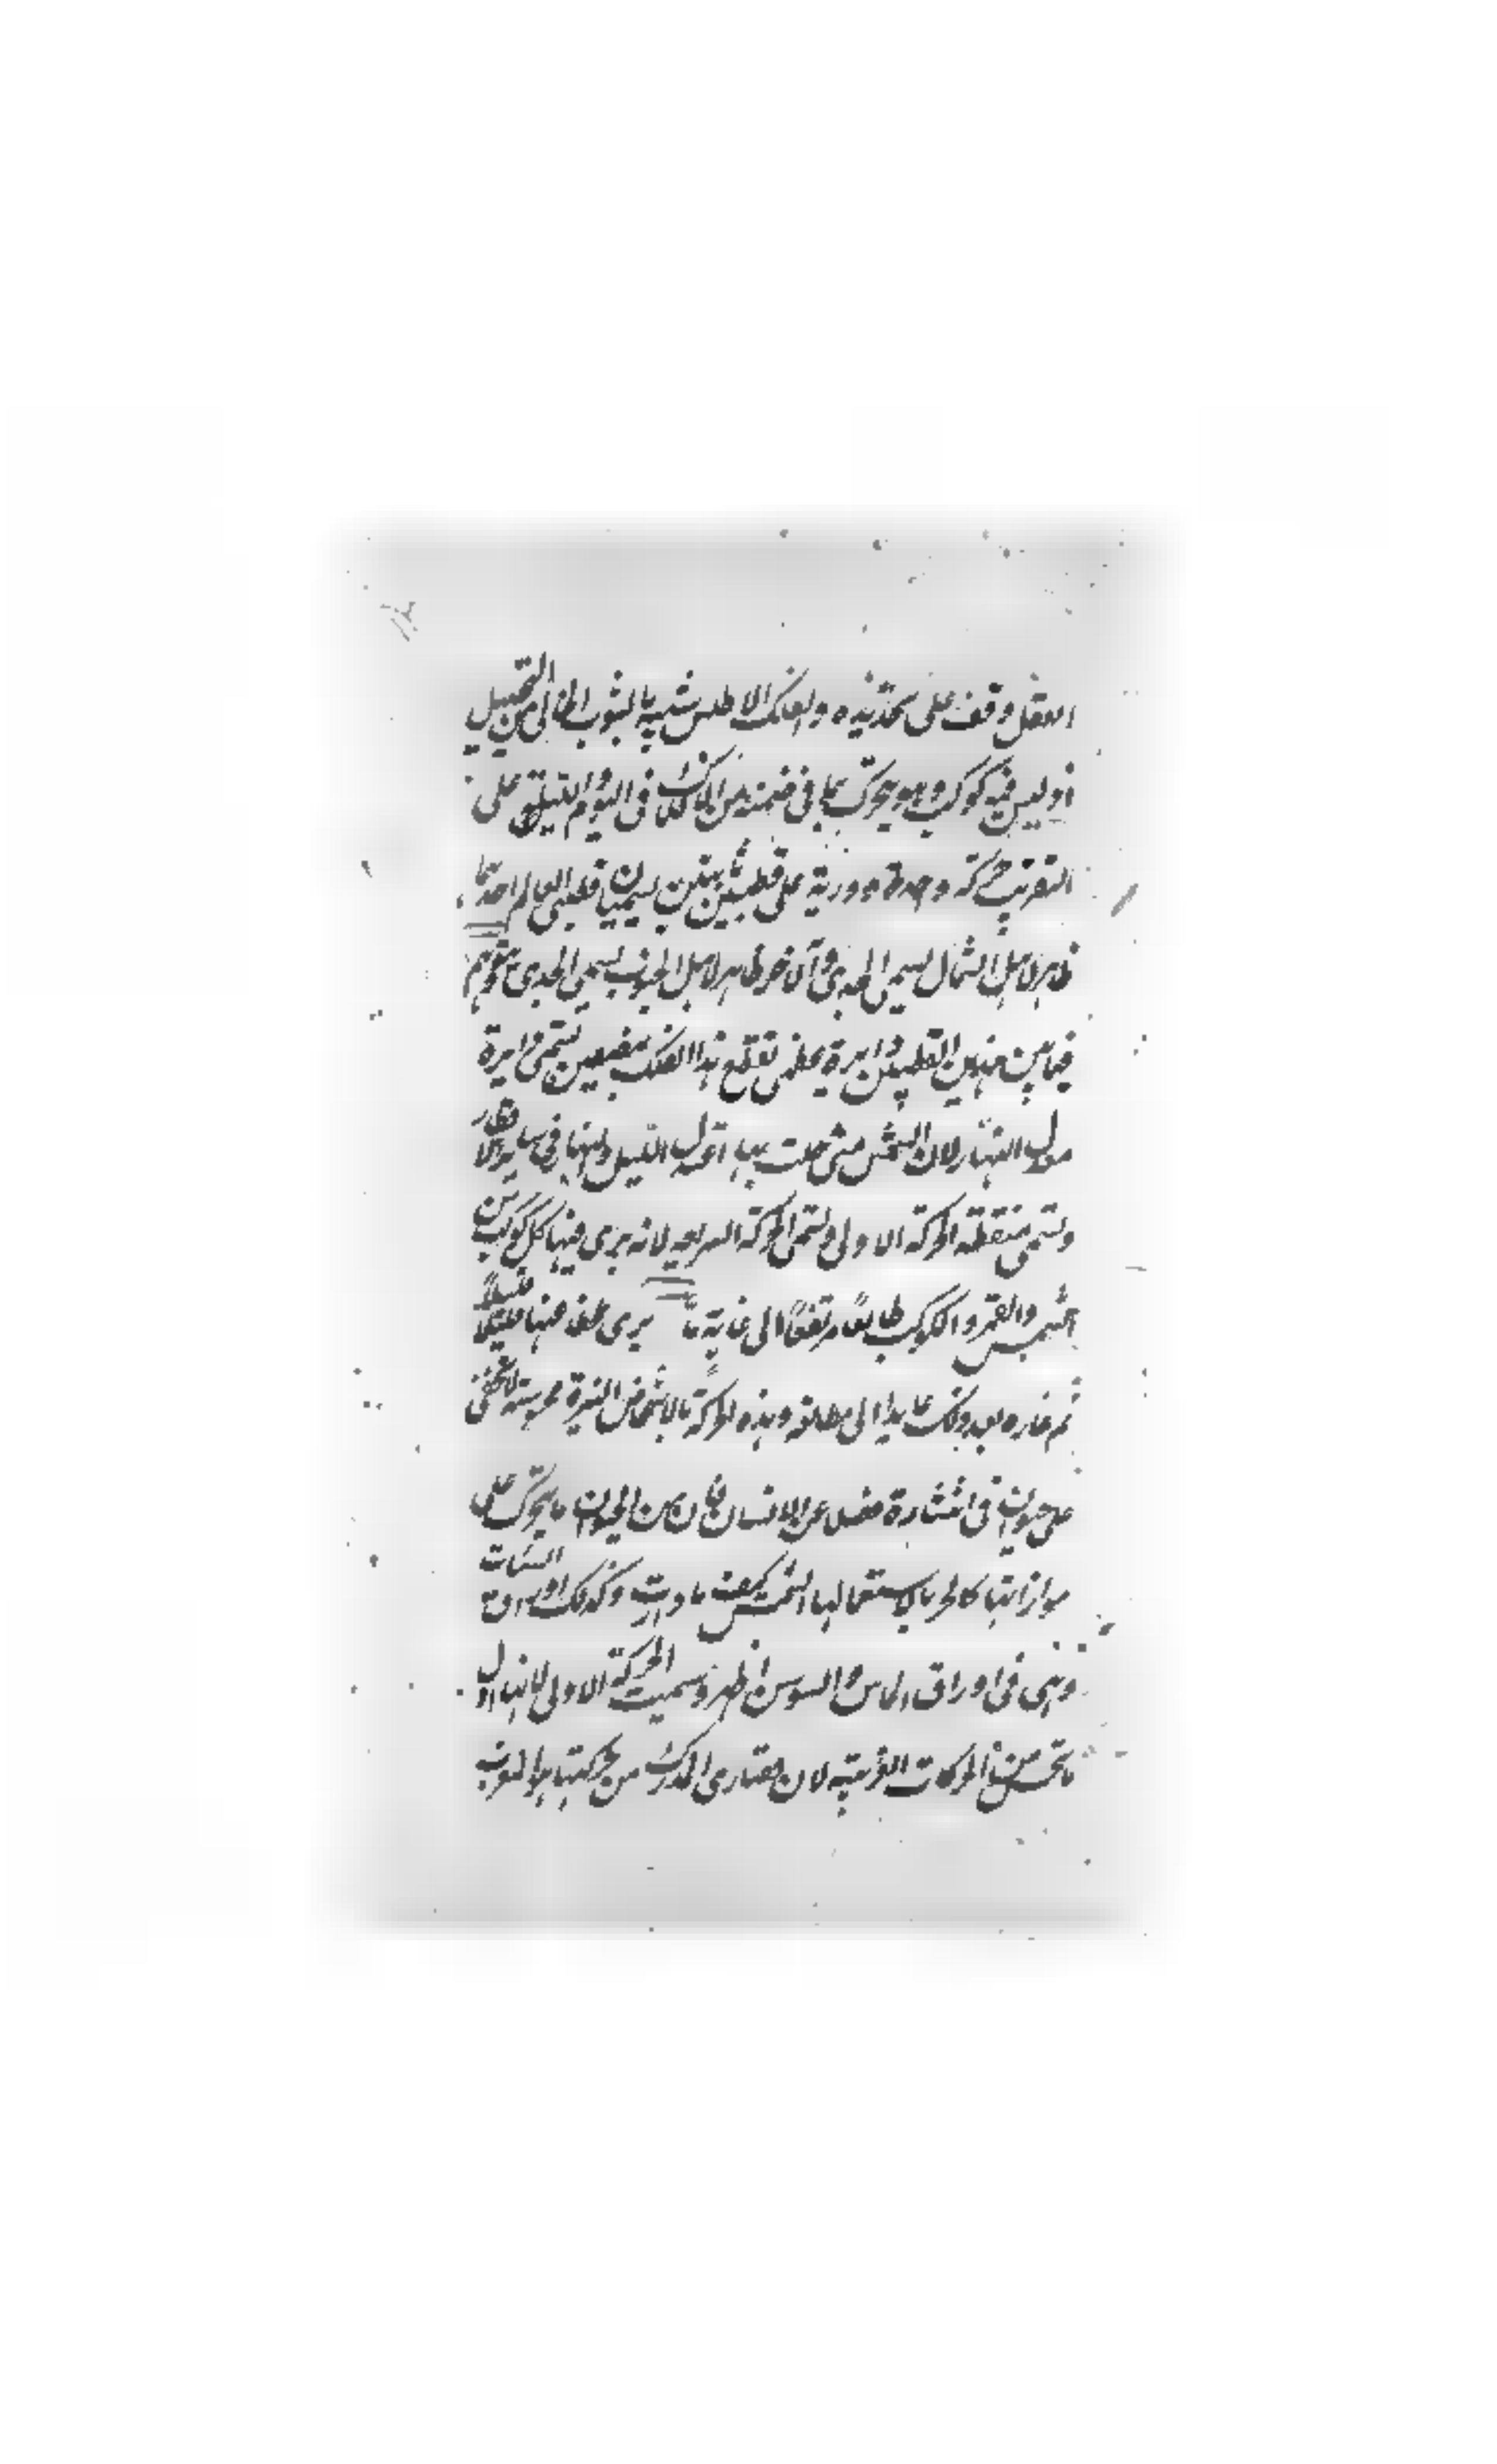 العقل وقف على تحديده والفلك الاطلس شبيه بالثوب الخالي من التخييل
اذ ليس فيه كوكب وهو يحرك بما في ضمنه من الافلاك في اليوم بليلته على
التقريب حركة واحدة دورية على قطبين ثابتين يسميان قطبي العالم احدهما
ظاهر لاهل الشمال يسمى الجدي والآخر ظاهر لاهل الجنوب يسمى الجدي يتوهم
فيما بين هذين القطبين دايرة عظمى تقطع هذا الفلك بنصفين تسمى دايرة
معدل النهار لان الشمس متى حلت بها اعتدل الليل والنهار في ساير الاقطار
وتسمى منطقة الحركة الاولى وتسمى الحركة السريعة لانه يرى فيها كل كوكب من
الشمس والقمر والكوكب طالعا مرتفعا الى غاية ما يرى منها قليلا قليلا
ثم غاربه بعد ذلك عايدا الى مطلعه وهذه الحركة بالاشخاص النيرة محسوسة لا تخفى
على حيوان في فضلا عن الانسان فان من الحيوان ما يتحرك على
موازاتها كالحرباء لاستقبالها الشمس كيف ما دارت وكذلك اوراق النبات
وهي في اوراق الماش والسوسن اظهر وسميت الحركة الاولى لانها اول
ما تحس من الحركات العرضية لان من حركتها هو الغروب